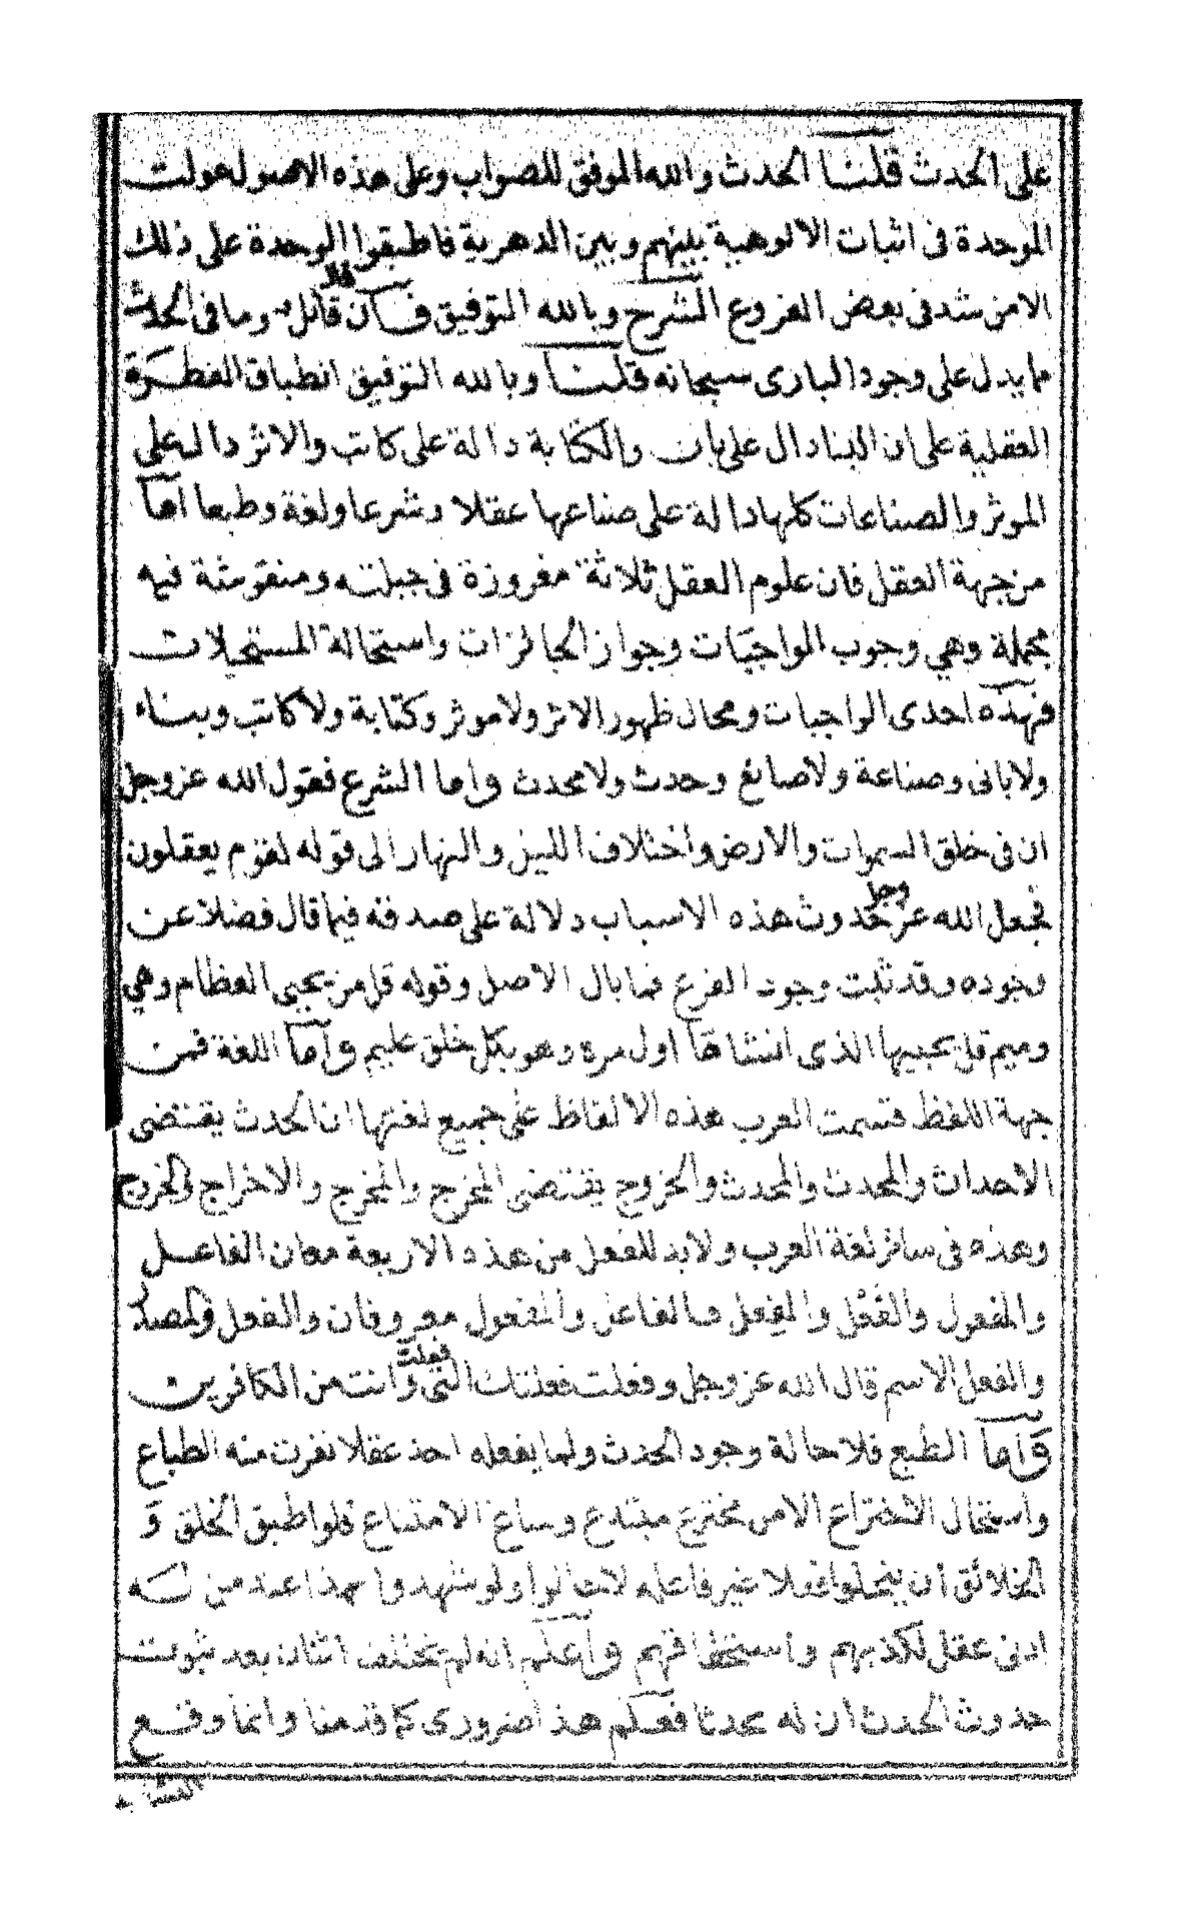 على الحدث قلنا الحدث والله الموفق للصواب وعلى هذه الاصول عولت
الموحدة في اثبات الالوهية بينهم وبين الدهرية فاطبقوا الموحدة على ذلك
الا من شذ في بعض الفروع الشرح وبالله التوفيق فان قال قائل وما في الحدث
ما يدل على وجود الباري سبحانه قلنا وبالله التوفيق انطباق الفطرة
العقلية على ان البنا دال على بان والكتابة دالة على كاتب والاثر دال على
الموثر والصناعات كلها دالة على صناعها عقلا وشرعا ولغة وطبعا اما
من جهة العقل فان علوم العقل ثلاثة مغروزة في جبلته ومنقوشة فيه
مجملة وهي وجوب الواجبات وجواز الجائزات واستحالة المستحيلات
فهذه احدى الواجبات ومحال ظهور الاثر ولا موثر وكتابة ولا كاتب وبناء
ولا باني وصناعة ولا صانع وحدث ولا محدث واما الشرع فقول الله عز وجل
ان في خلق السموات والارض واختلاف الليل والنهار الى قوله لقوم يعقلون
فجعل الله عز وجل حدوث هذه الاسباب دلالة على صدقه فيما قال فضلا عن
وجوده وقد ثبت وجود الفرع فما بال الاصل وقوله قل من يحيي العظام وهي
رميم قل يحييها الذي انشاها اول مرة وهو بكل خلق عليم واما اللغة فمن
جهة اللفظ قسمت العرب هذه الالفاظ على جميع لغتها ان الحدث يقتضي
الاحداث والمحدث والمحدث والخروج يقتضي المخرج والمخرج والاخراج والخروج
وهذه في سائر لغة العرب ولا بد للفعل من هذه الاربعة معان الفاعل
والمفعول والفعل والفعل فالفاعل والمفعول معروفان والفعل المصدر
والفعل الاسم قال الله عز وجل وفعلت فعلتك التي فعلت وانت من الكافرين
واما الطبع فلا حالة وجود الحدث ولما يفعله احد عقلا نفرت منه الطباع
واستحال الاختراع الا من مخترع مبتدع وساغ الامتناع فلو اطبق الخلق و
الخلائق ان ينحلوا فعلا غير فاعله لانت لوا ولو شهدوا بهذا عند من له
ادنى عقل لكذبهم واستخفافهم واعلم انه لم يختلف اثنان بعد ثبوت
حدوث الحدث ان له محدثا فعلم هذا ضروري كما قدمنا وانما وقع